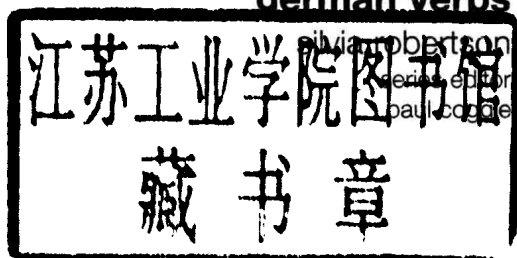 german verbs
silvia robertson
series editor
paul coggle
江苏工业学院图书馆
藏书章